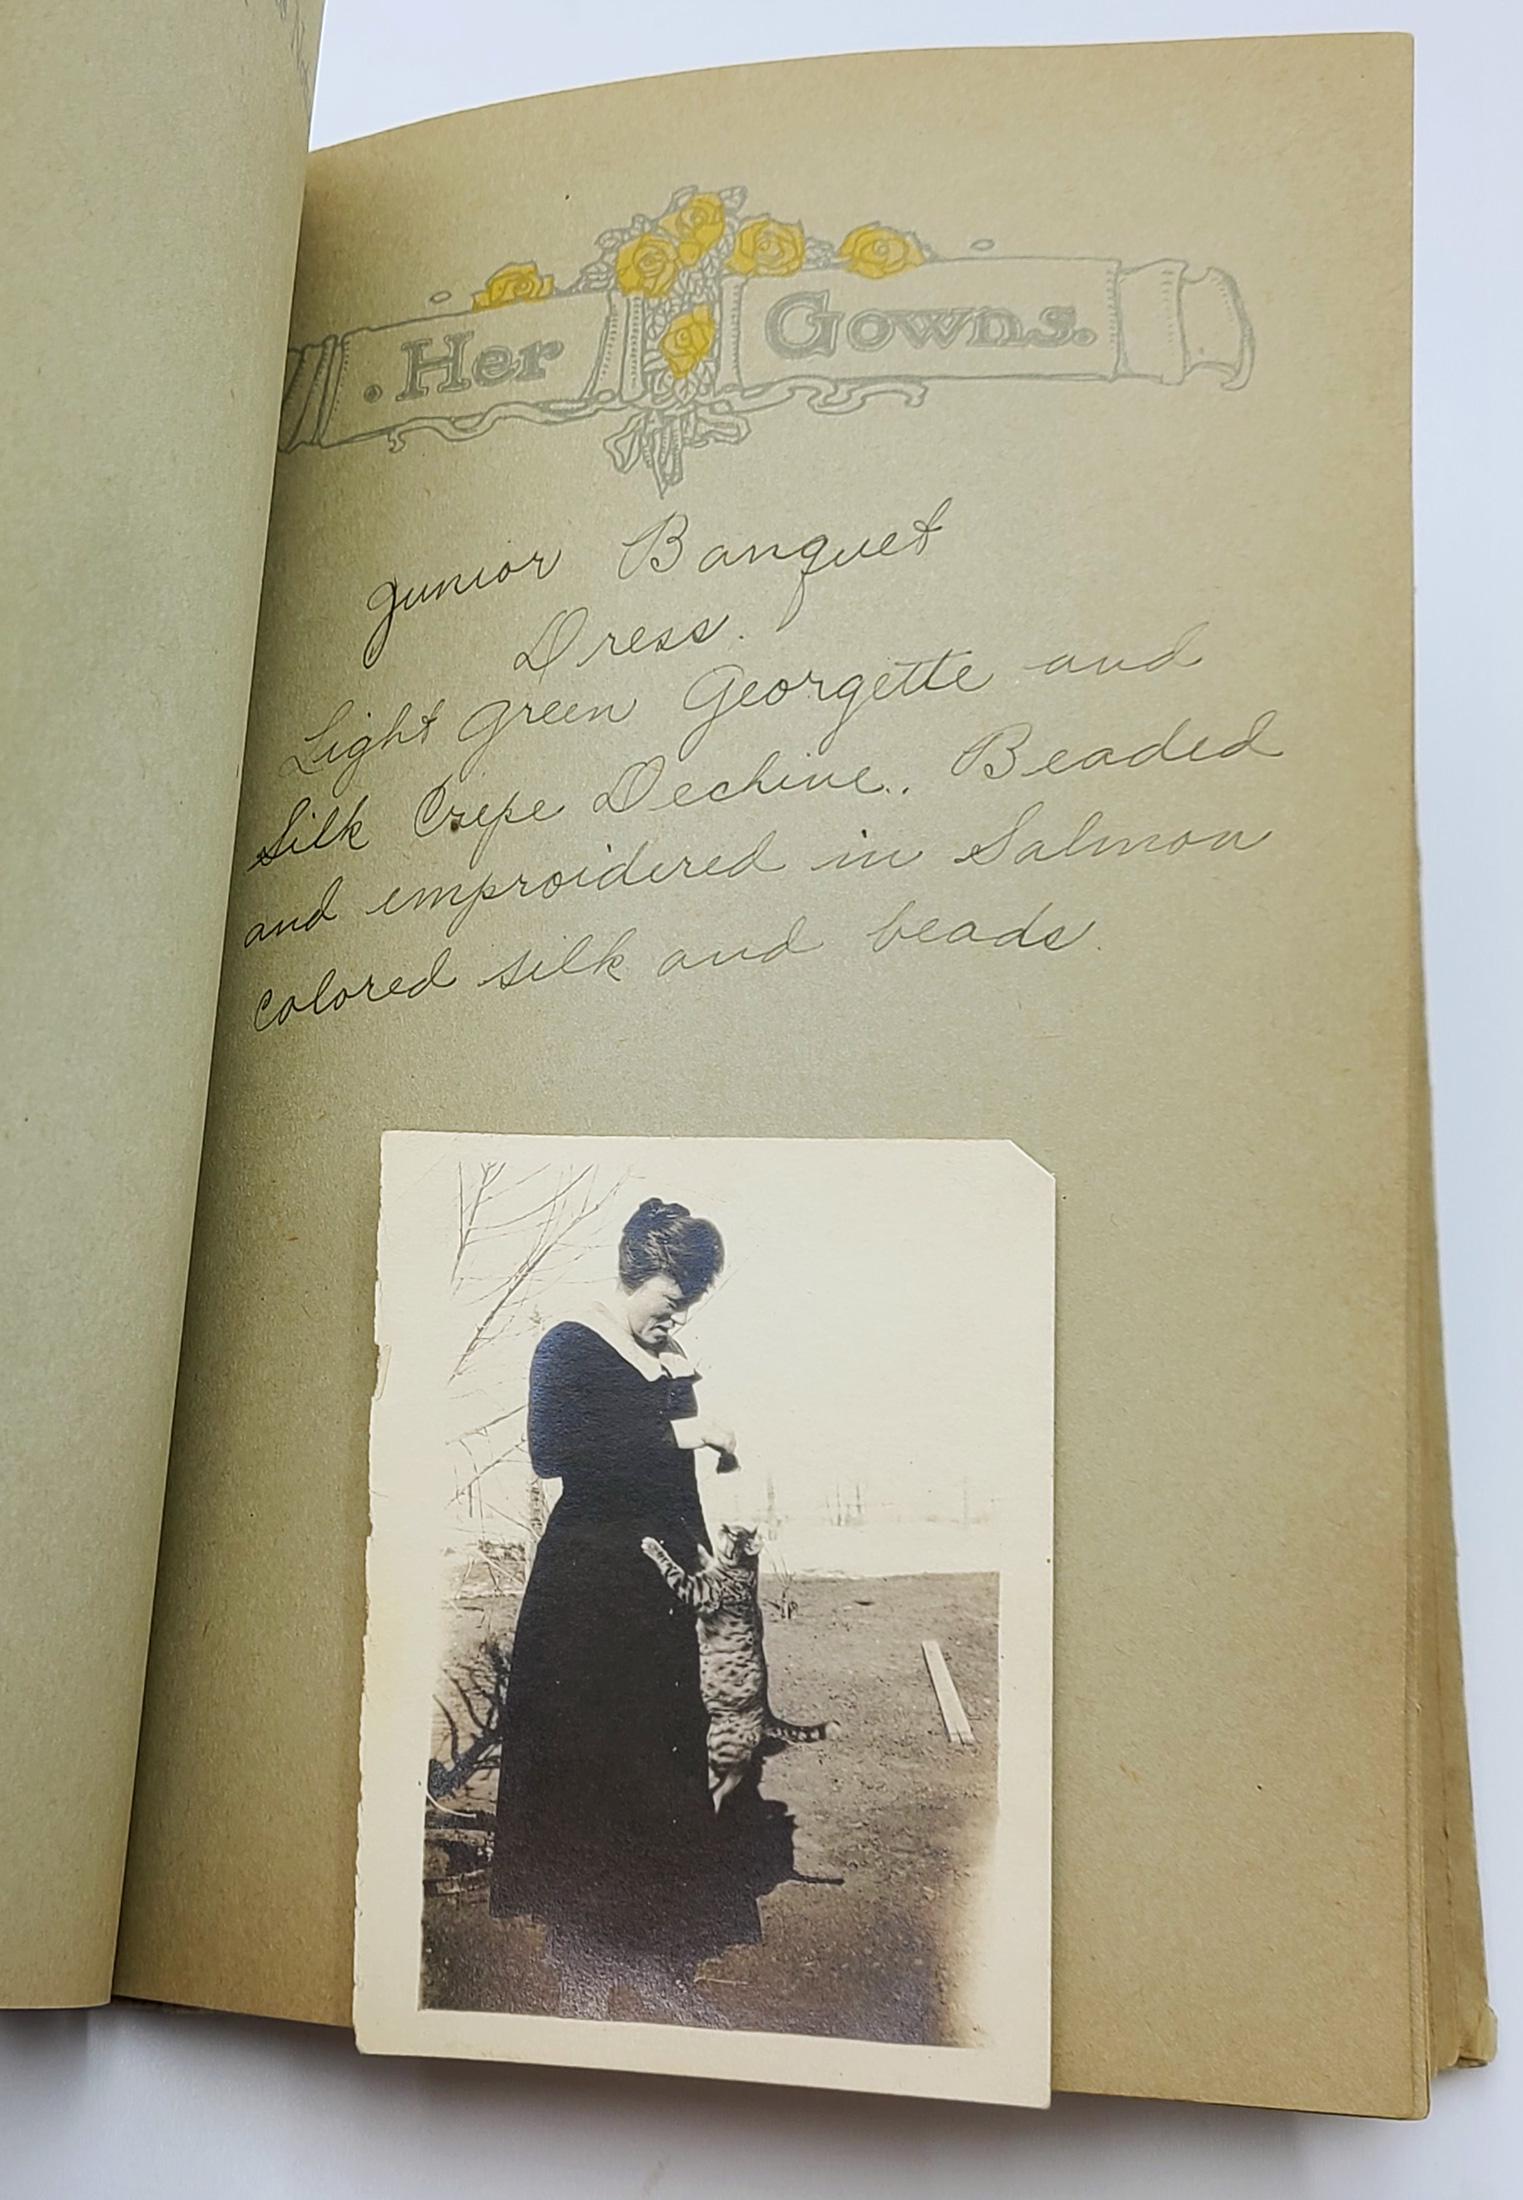 . Her Gowns.
Junior Banquet
Dress.
Light green Georgette and
Silk Crepe Dechine.. Beaded
and emproidered in Salmon
colored silk and beads.